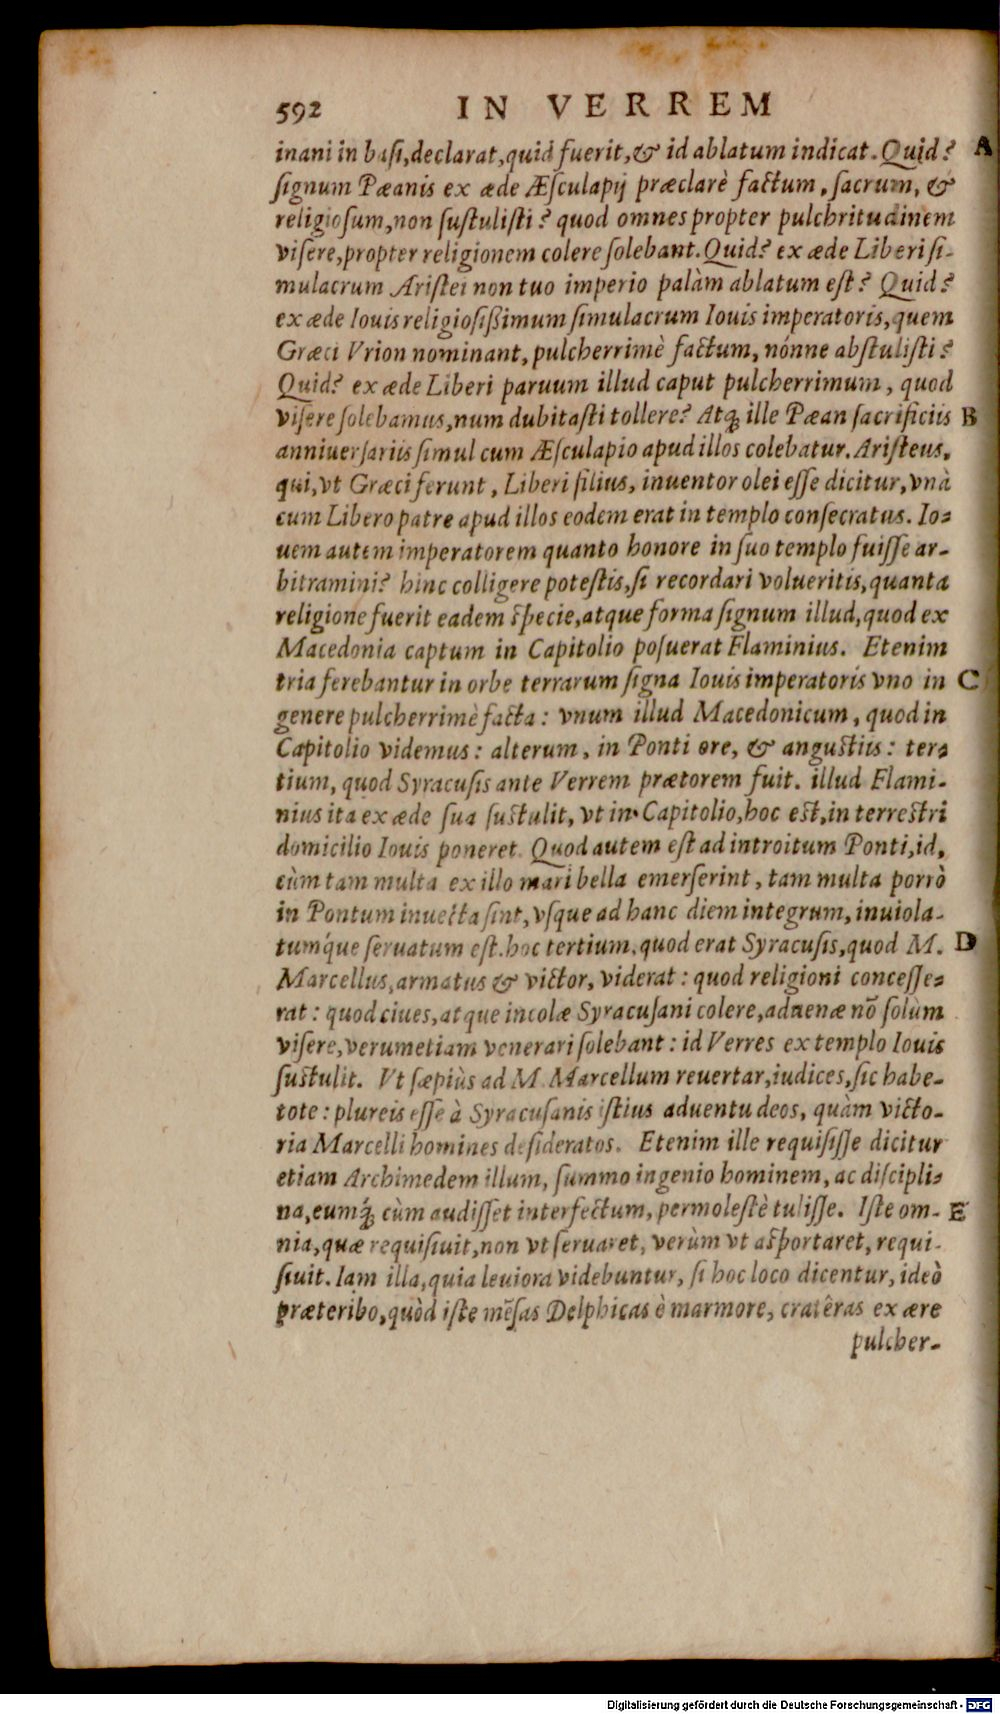 592 IN VERREM
inani in basi, declarat, quid fuerit, & id ablatum indicat. Quid? A
ſignum Pæanis ex æde Æſculapij præclarè factum, ſacrum, &
religioſum, non ſuſtuliſti? quod omnes propter pulchritudinem
viſere, propter religionem colere ſolebant. Quid? ex æde Liberi ſi-
mulacrum Ariſtei non tuo imperio palàm ablatum eſt? Quid?
ex æde Iouis religioſißimum ſimulacrum Iouis imperatoris, quem
Græci Vrion nominant, pulcherrimè factum, nónne abſtuliſti?
Quid? ex æde Liberi paruum illud caput pulcherrimum, quod
viſere ſolebamus, num dubitaſti tollere? Atq; ille Pæan ſacrificiis B
anniuerſariis ſimul cum Æſculapio apud illos colebatur. Ariſteus,
qui, vt Græci ferunt, Liberi filius, inuentor olei eſſe dicitur, vnà
cum Libero patre apud illos eodem erat in templo conſecratus. Io-
uem autem imperatorem quanto honore in ſuo templo fuiſſe ar-
bitramini? hinc colligere poteſtis, ſi recordari volueritis, quanta
religione fuerit eadem ſpecie, atque forma ſignum illud, quod ex
Macedonia captum in Capitolio poſuerat Flaminius. Etenim
tria ferebantur in orbe terrarum ſigna Iouis imperatoris vno in C
genere pulcherrimè facta: vnum illud Macedonicum, quod in
Capitolio videmus: alterum, in Ponti ore, & anguſtiis: ter-
tium, quod Syracuſis ante Verrem prætorem fuit. illud Flami-
nius ita ex æde ſua ſuſtulit, vt in Capitolio, hoc eſt, in terreſtri
domicilio Iouis poneret. Quod autem eſt ad introitum Ponti, id,
cùm tam multa ex illo mari bella emerſerint, tam multa porrò
in Pontum inuecta ſint, vſque ad hanc diem integrum, inuiola-
tumq́ue ſeruatum eſt. hoc tertium, quod erat Syracuſis, quod M. D
Marcellus, armatus & victor, viderat: quod religioni conceſſe-
rat: quod ciues, atque incolæ Syracuſani colere, aduenæ nō ſolùm
viſere, verumetiam venerari ſolebant: id Verres ex templo Iouis
ſuſtulit. Vt ſæpiùs ad M. Marcellum reuertar, iudices, ſic habe-
tote: plureis eſſe à Syracuſanis iſtius aduentu deos, quàm victo-
ria Marcelli homines deſideratos. Etenim ille requiſiſſe dicitur
etiam Archimedem illum, ſummo ingenio hominem, ac diſcipli-
na, eumq́; cùm audiſſet interfectum, permoleſtè tuliſſe. Iſte om- E
nia, quæ requiſiuit, non vt ſeruaret, verùm vt aſportaret, requi-
ſiuit. Iam illa, quia leuiora videbuntur, ſi hoc loco dicentur, ideò
præteribo, quòd iſte mēſas Delphicas è marmore, cratêras ex ære
pulcher-
Digitalisierung gefördert durch die Deutsche Forschungsgemeinschaft - DFG